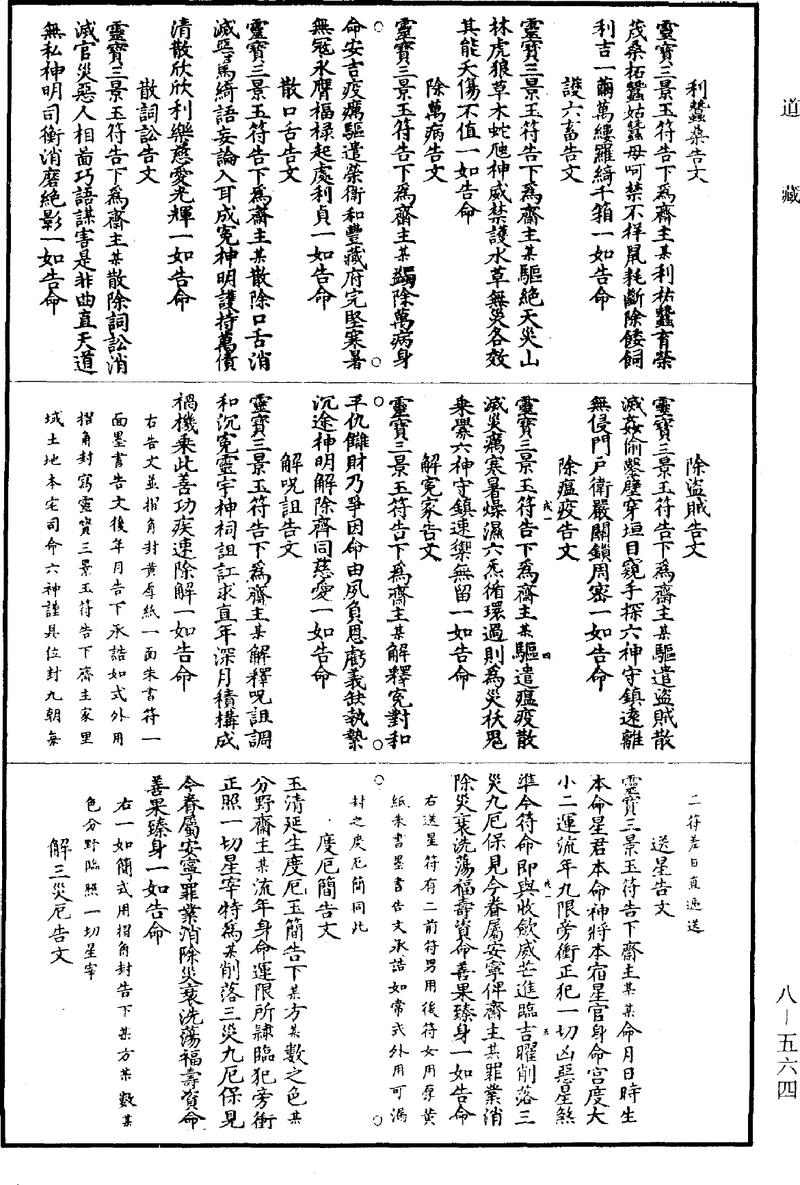 道藏
利蠶桑告文
靈寶三景玉符告下爲齋主某利祐蠶育榮
茂桑柘蠶姑蠶母呵禁不祥鼠耗斷除餧飼
利吉一繭萬縷羅綺千箱一如告命
護六畜告文
靈寶三景玉符告下爲齋主某驅絕天災山
林虎狼草木蛇虺神威禁護水草無災各效
其能夭傷不值一如告命
除萬病告文
靈寶三景玉符告下爲齋主某蠲除萬病身
命安吉疫癘驅遣榮衛和豐藏府完堅寒暑
無冦永膺福祿起處利貞一如告命
散口舌告文
靈寶三景玉符告下爲齋主某散除口舌消
滅咢罵綺語妄論入耳成寃神明護持萬憤
清散欣欣利樂慈愛光輝一如告命
散詞訟告文
靈寶三景玉符告下爲齋主某散除詞訟消
滅官災惡人相啚巧語謀害是非曲直天道
無私神明司衡消磨絕影一如告命
除盜賊告文
靈寶三景玉符告下爲齋主某驅遣盜賊散
滅姦偷鑿壁穿垣目窺手探六神守鎮遠離
無侵門戶衛嚴關鎖周密一如告命
除瘟疫告文
靈寶三景玉符告下爲齋主某驅遣瘟疫散
滅災癘寒暑燥濕六炁循環過則爲災袄鬼
乘釁六神守鎮速禦無留一如告命
解寃家告文
靈寶三景玉符告下爲齋主某解釋寃對和
平仇讎財乃爭因命由夙負恩虧義缺執縶
沉途神明解除齊同慈愛一如告命
解呪詛告文
靈寶三景玉符告下爲齋主某解釋呪詛調
和沉寃靈宇神祠詛訌求直年深月積構成
禍機乘此善功疾速除解一如告命
右告文並摺角封黄厚紙一面朱書符一
面墨書告文後年月告下承誥如式外用
摺角封寫靈寶三景玉符告下齋主家里
域土地本宅司命六神謹具位封九朝每
二符差日直遞送
送星告文
靈寶三景玉符告下齋主某某命月日時生
本命星君本命神將本宿星官身命宫度大
小二運流年九限旁衝正犯一切凶惡星煞
準今符命即與收歛威芒進臨吉曜削落三
災九厄保見今眷屬安寧俾齋主某罪業消
除災衰洗蕩福壽資命善果臻身一如告命
右送星符有二前符男用後符女用厚黄
紙朱書墨書告文承誥如常式外用可漏
封之度厄簡同此
度厄簡告文
玉清延生度厄玉簡告下某方某數之色某
分野齋主某流年身命運限所隷臨犯旁衝
正照一切星宰特爲某削落三災九厄保見
今眷屬安寧罪業消除災衰洗蕩福壽資命
善果臻身一如告命
右一如簡式用摺角封告下某方某數某
色分野臨照一切星宰
解三災厄告文
八—五六四